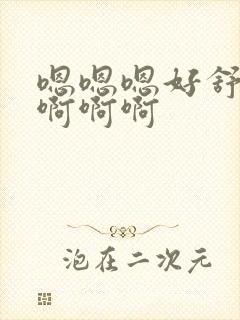 嗯嗯嗯好舒
啊啊啊
泡在二次元